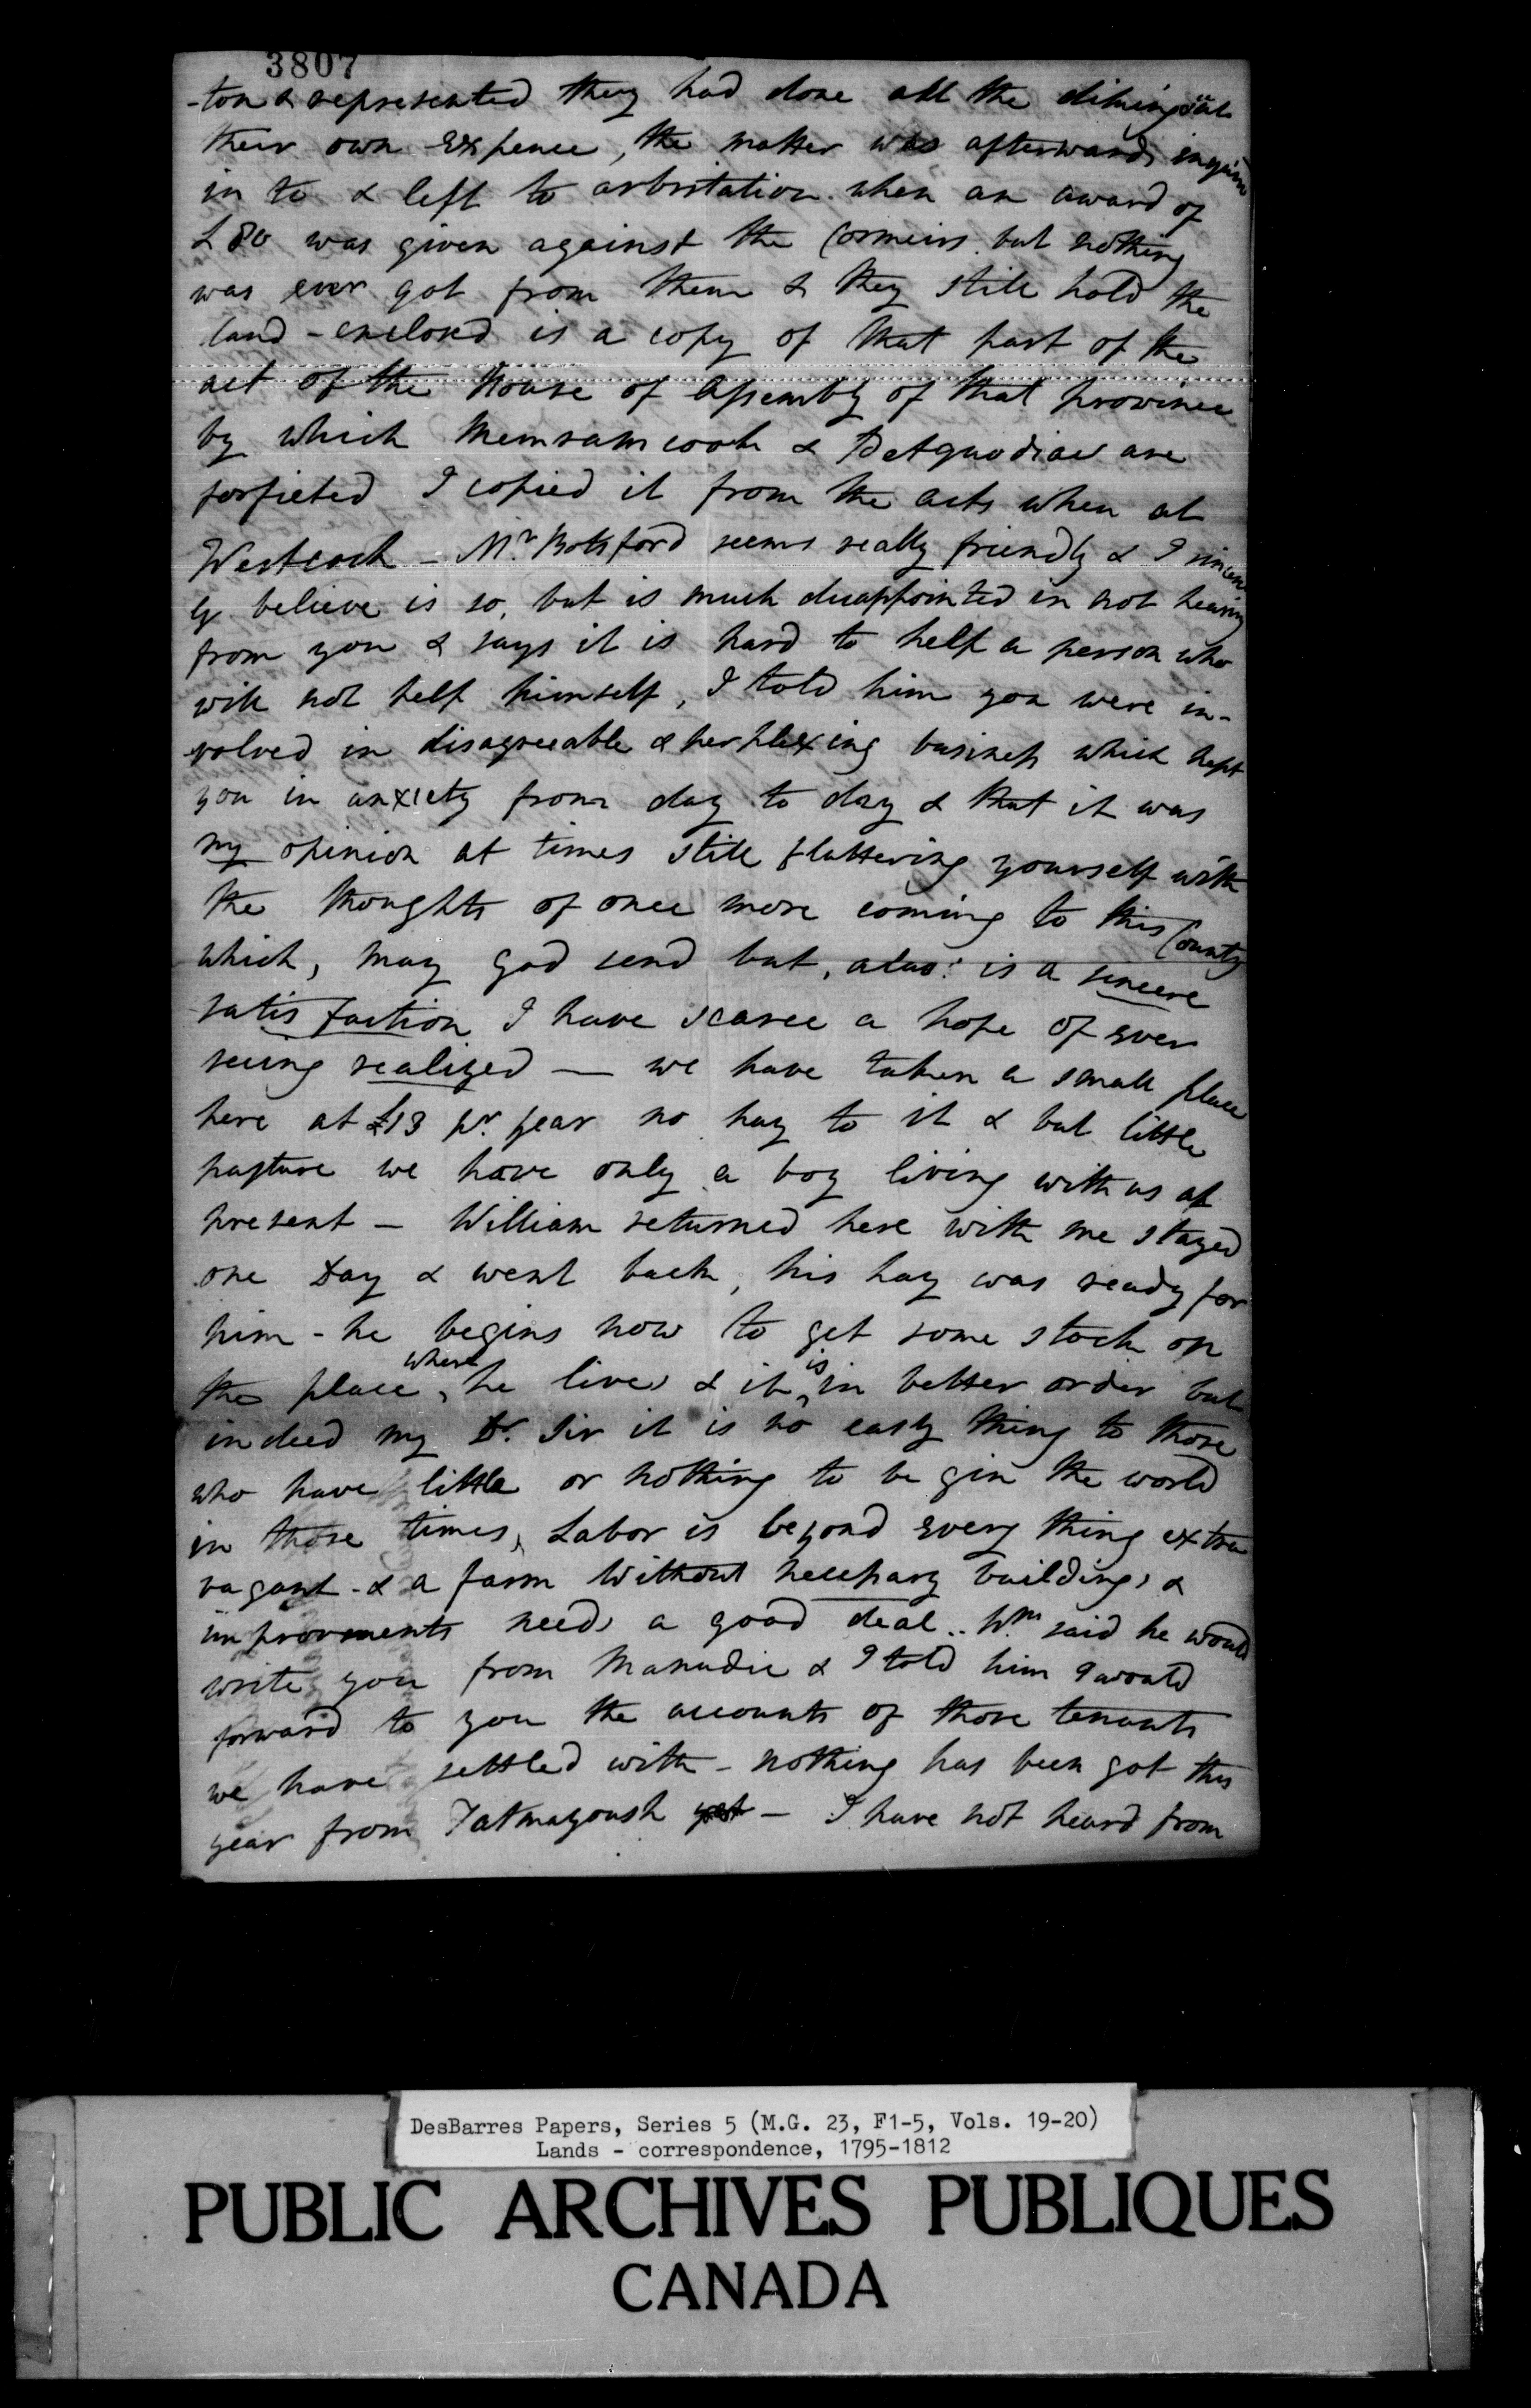 3807
-ton & represented they had done all the dikeing at
their own Expence, the matter was afterwards inquired
in to & left to arbitration when an award of
£80 was given against the Cormeirs but nothing
was ever got from them & they still hold the
land - enclosed is a copy of that part of the
act of the House of Assembly of that province
by which Memramcook & Petquodiac are
forfieted I copied it from the acts when at
Westcock - Mr. Botsford seems really friendly & I sincere
ly believe is so, but is much disappointed in not hearing
from you & says it is hard to help a person who
will not help himself, I told him you were in-
volved in disagreeable & perplexing business which kept
you in anxiety from day to day & that it was
my opinion at times still flattering yourself with
the thoughts of once more coming to this County
which, may god send but, alas! is a sincere
satisfaction I have scarce a hope of ever
seeing realized — we have taken a small place
here at £13 pr. year no hay to it & but little
pasture we have only a boy living with us at
present - William returned here with me stayed
one Day & went back, his hay was ready for
him - he begins now to get some stock on
the place where he lives & it is in better order but
indeed my Dr. Sir it is no easy thing to those
who have little or nothing to be gin the world
in those times, Labor is beyond every thing extra
vagant - & a farm without necessary buildings &
improvments needs a good deal.. Wm said he would
write you from Manudie & I told him I would
forward to you the accounts of those tenants
we have settled with - nothing has been got this
year from Tatmagoush yet - I have not heard from
DesBarres Papers, Series 5 (M.G. 23, F1-5, Vols. 19-20)
Lands - correspondence, 1795-1812
PUBLIC ARCHIVES PUBLIQUES
CANADA